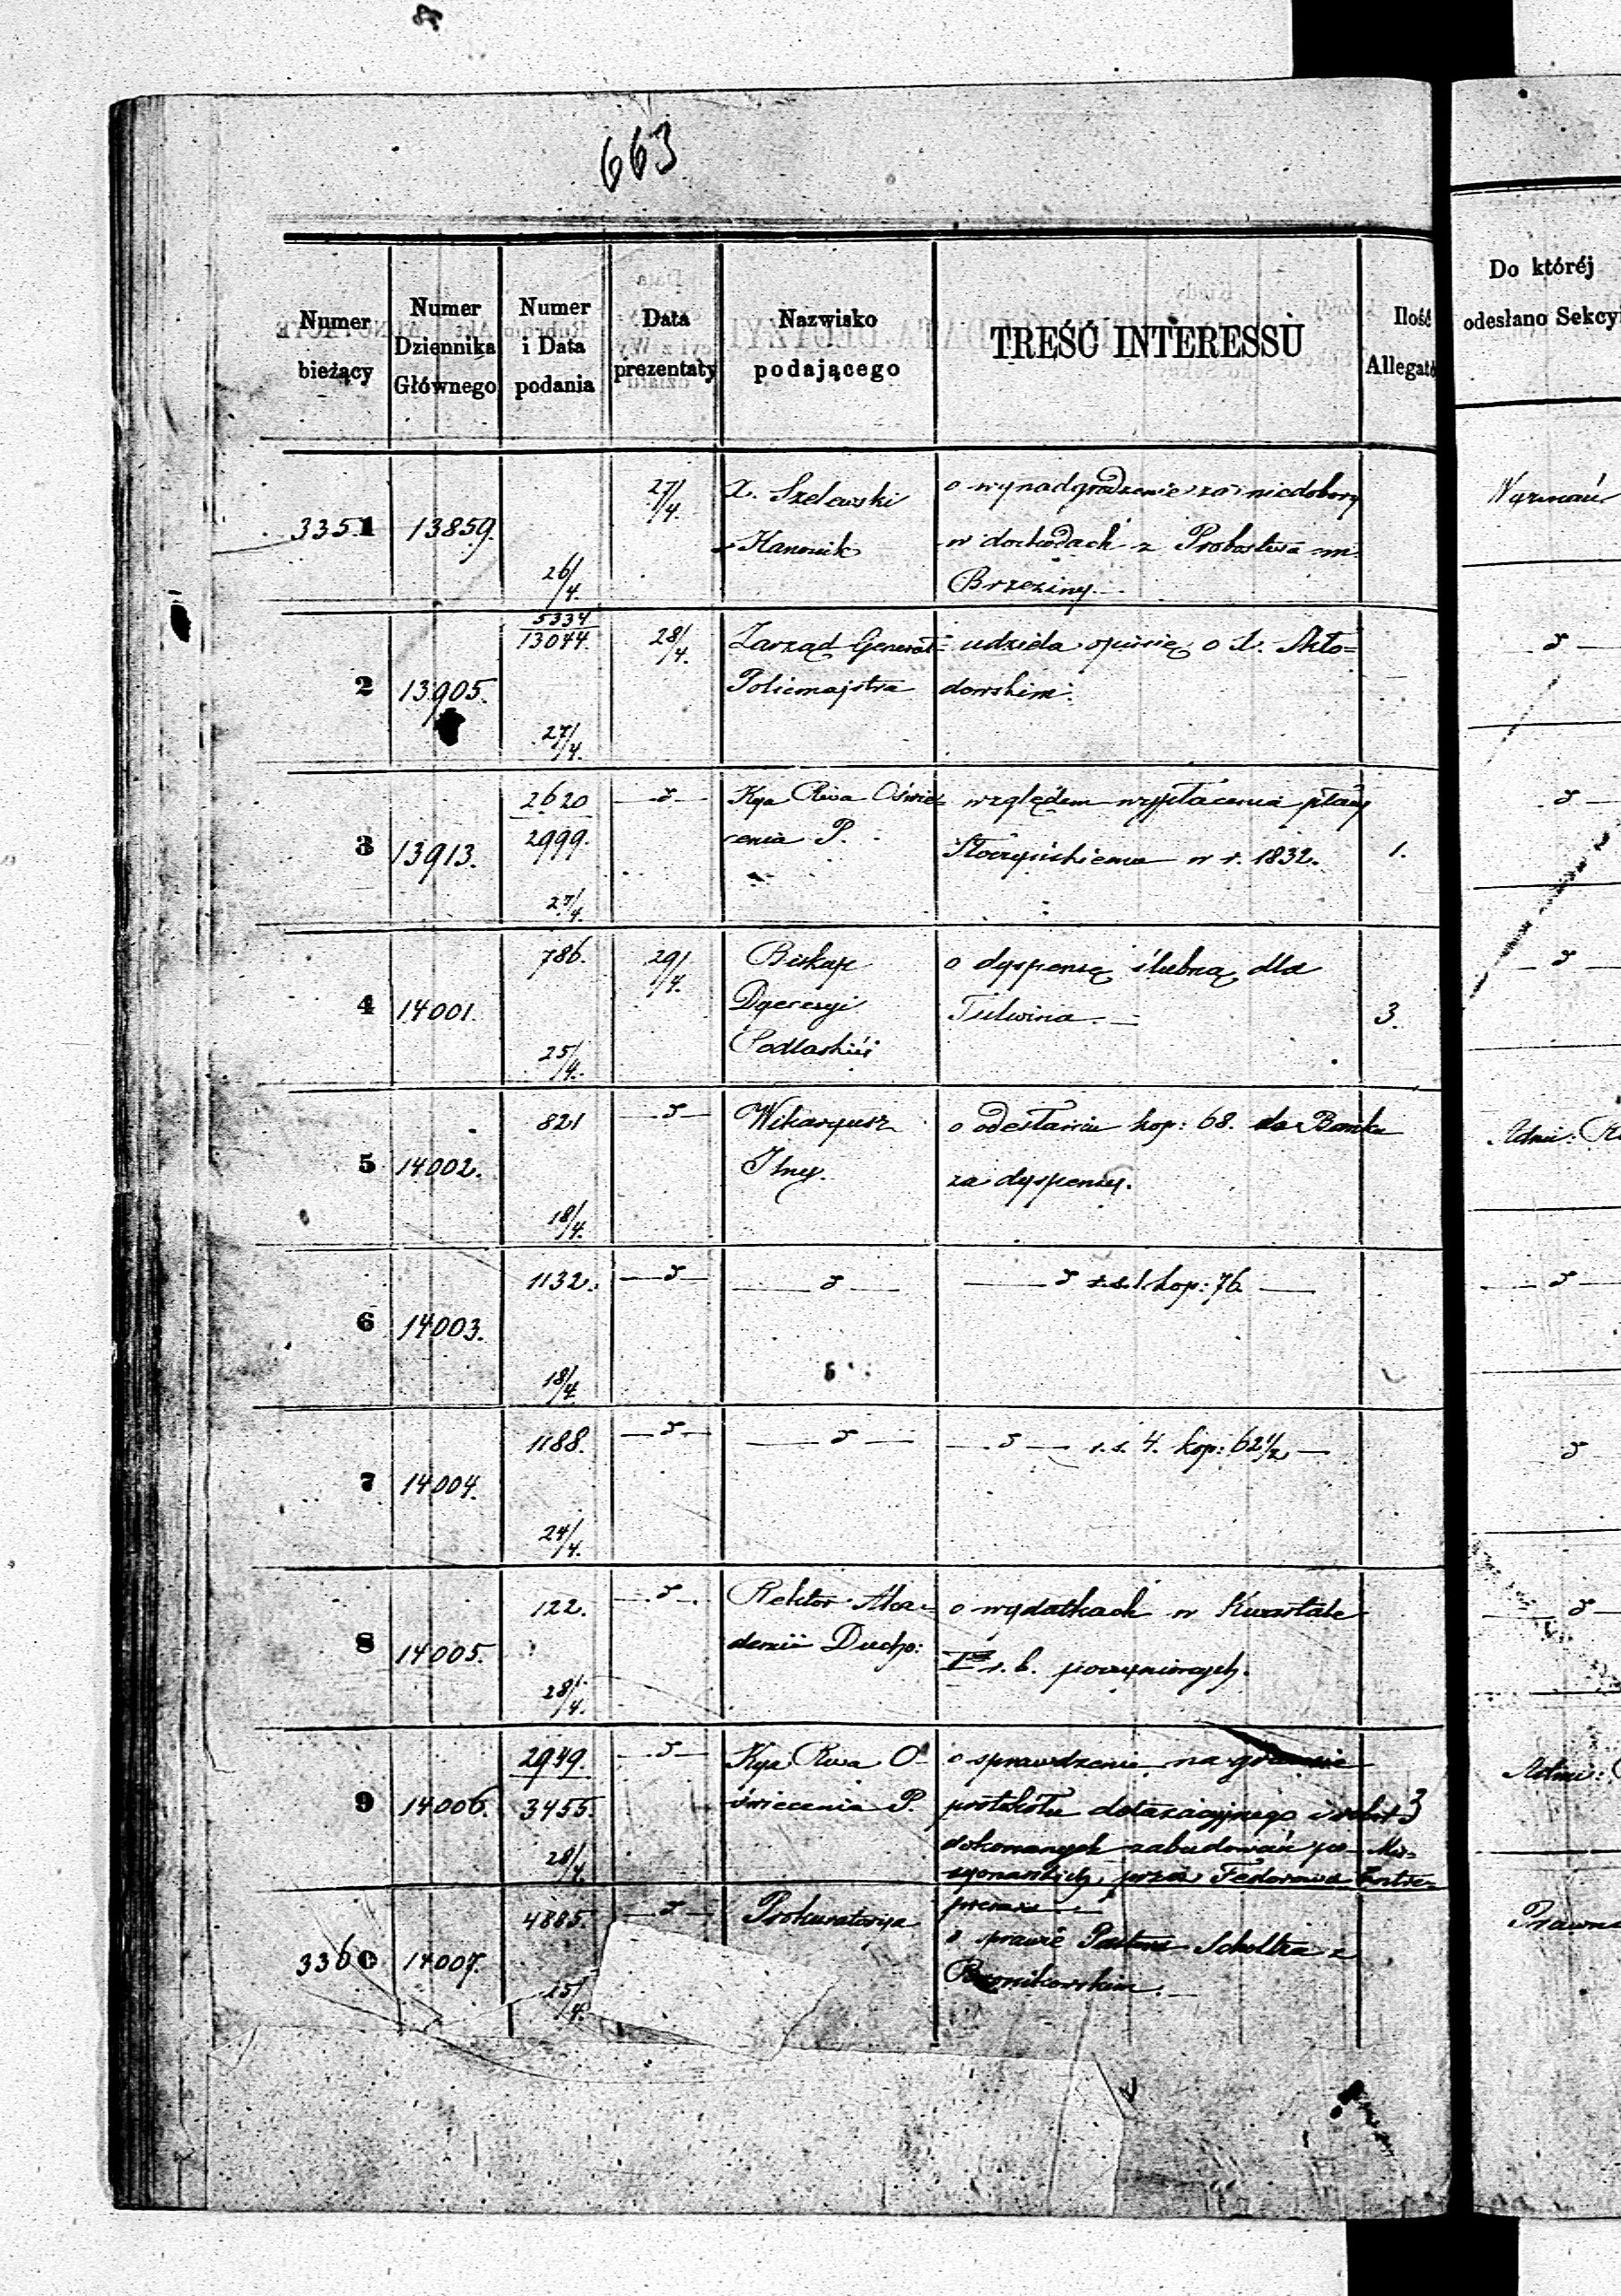 663
Numer bieżący
Numer Dziennika Głównego
Numer i Data podania
Data prezentaty
Nazwisko podającego
TREŚĆ INTERESSU
Ilość Allegató
Do któréj odesłano Sekcyi
3351 13859. 26/4. 27/4. X. Szelewski
Kanonik
o wynadgrodzenie za niedobory
w dochodach z Probostwa m.
Brzeziny.
Wyznań
2 13905. 5334/13044. 27/4. 28/4. Zarząd Generał=
Policmajstra
udziela opinię o X.
dowskim.
3 13913. 2620/2999. 27/4. Kja Rwa Oświe=
cenia P.
względem wypłacenia płacy
w r. 1832.
1.
4 14001. 786. 25/4. 29/4. Biskup
Dyecezyi
Podlaskiéj
o dyspensę ślubną dla
Tulwina.
3.
5 14002. 821 18/4. Wikaryusz
Iłży.
o odesłaniu kop: 68. do Banku
za dyspensy.
Admi:
6 14003. 1132. 18/4. r.s. 1. kop: 76.
7 14004. 1188. 24/4. r.s. 4. kop: 62 1/2
8 14005. 122. 28/4. Rektor Aka=
demii Ducho:
o wydatkach w Kwartale
I r. b. poczynionych.
9 14006. 2949./3455. 28/4. Kja Rwa O=
świecenia P.
o sprawdzenie na gruncie
protokółu dotaxacyjnego i robót
dokonanych zabudowań po Mis=
syonarskich przez Fedorowa Entre=
prenera
3
Admi:
3360 14007. 4885. 15/4. Prokuratorya
o sprawie Pastora Scholtza z
Bronikowskim.
Prawna